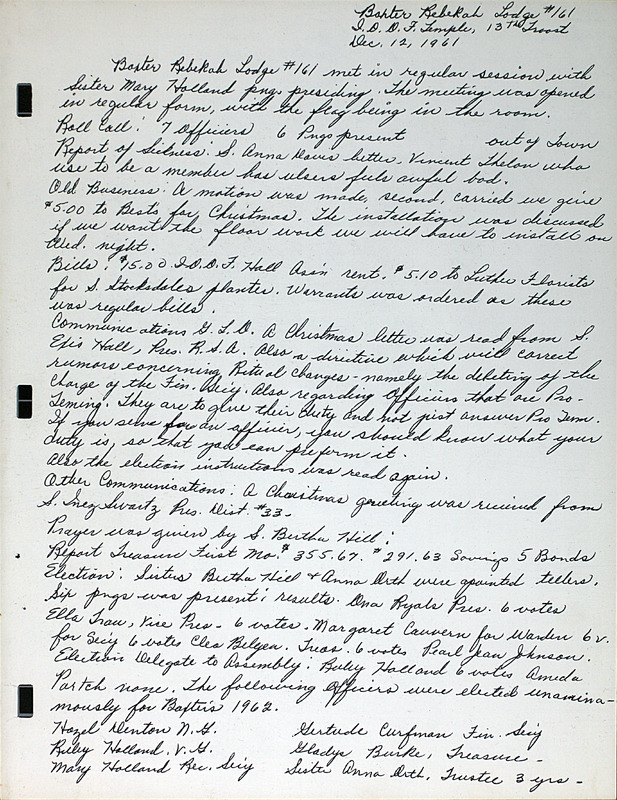 Baxter Rebekah Lodge #161
I.O.O.F. Temple, 13th Troost
Dec. 12, 1961
Baxter Rebekah Lodge #161 met in regular session with
Sister Mary Holland png. presiding. The meeting was opened
in regular form, with the flag being in the room.
Roll Call: 7 Officers 6 Pngs present out of Town
Report of Sickness: S. Anna Davis letter, Vincent Thelan who
use to be a member has ulsers fuls awful bad.
Old Business: A motion was made, second, carried we give
$5.00 to Bests for Christmas. The installation was discussed
if we want the floor work we will have to install on
Wed. night.
Bills: $15.00 I.O.O.F. Hall Assn rent. $5.10 to Luther Florists
for S. Stocksdales planter. Warrants was ordered as these
was regular bills.
Communications G.L.O. A Christmas letter was read from S.
Edis Hall, Pres. R.S.A. Also a diritive which will correct
rumors concerning Ritual Changes - namely the deleting of the
Charge of the Fin. Secy. Also regarding Officers that are Pro-
Teming. They are to give their duty and not just answer Pro Tem.
If you serve for an officer, you should know what your
duty is, so that you can preform it.
Also the election instructions was read again.
Other Communications: A Christmas greeting was recieved from
S. Inez Swartz Pres. Dist. #33-
Prayer was given by S. Bertha Hill:
Report Treasure First Mo. $355.67. $291.63 Savings 5 Bonds
Election: Sisters Bertha Hill & Anna Orth were apointed tellers.
Six pngs was present; results. Ona Ryals Pres. 6 votes
Ella Trau, Vice Pres - 6 votes. Margaret Cauvern for Warden 6 v.
for Secy 6 votes Clea Belyea. Treas. 6 votes Pearl Jean Johnson.
Election Delegate to Assembly: Buley Holland 6 votes Ameda
Partch none. The following Officers were elected unamina-
mously for Baxter 1962.
Hazel Denton N.G. Gertrude Curfman Fin. Secy
Buley Holland, V.G. Gladys Burke, Treasure -
Mary Holland Rec. Secy Sister Anna Orth, Trustee 3 yrs -